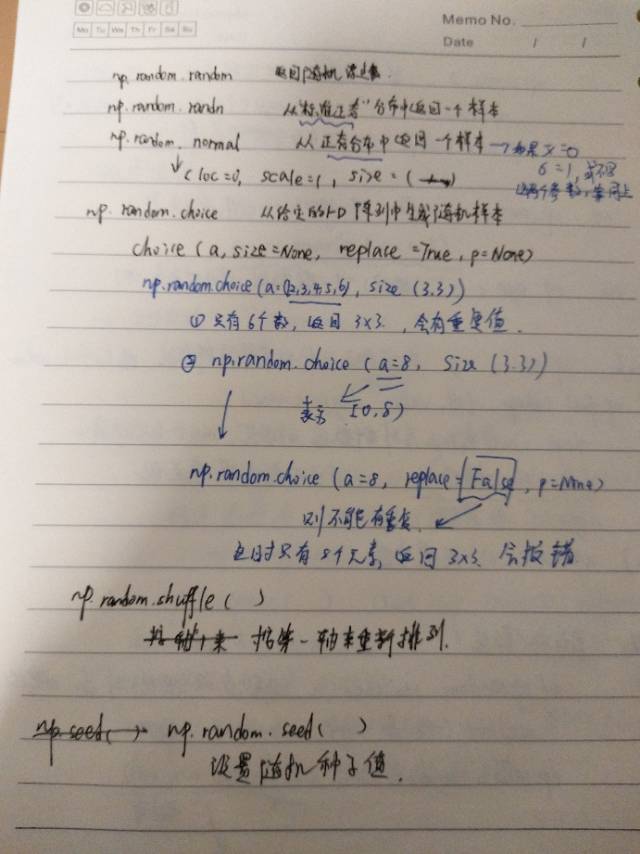 Mo Tu We Th Fr Sa Su
Memo No.
Date / /
np.random.random 返回随机浮点数
np.random.randn 从"标准正态"分布中返回一个样本
np.random.normal 从正态分布中返回一个样本 → 如果 x=0
σ=1, 或不设
这两个参数, 等同上
(loc=0, scale=1, size=( )
np.random.choice 从给定的1-D阵列中生成随机样本
choice (a, size=None, replace=True, p=None)
np.random.choice (a=(1,2,3,4,5,6), size (3.3))
① 只有6个数, 返回 3x3. 会有重复值.
② np.random.choice (a=8, size (3.3))
表示 [0,8)
np.random.choice (a=8, replace=False, p=None)
则不能有重复.
这时只有8个元素, 返回 3x3. 会报错
np.random.shuffle ( )
按第一轴来重新排列.
np.seed( ) → np.random.seed( )
设置随机种子值.